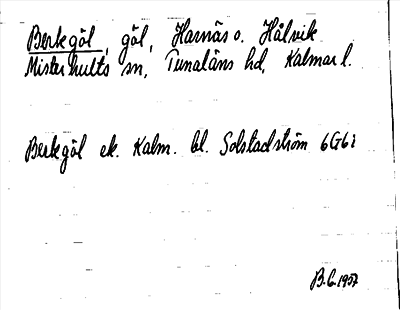 Berkgöl, göl, Harnäs o. Hålvik
Misterhults sn, Tunaläns hd, Kalmar l.
Berkgöl ek. Kalm. bl. Solstadström 6G6i
B.G. 1957